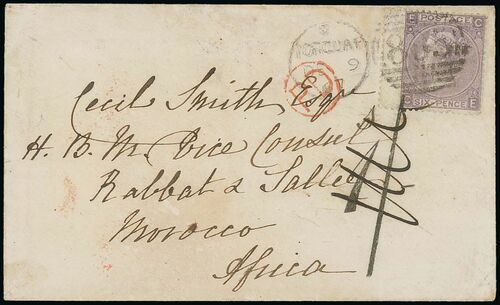 TORQUAY
9
POSTAGE
SIX PENCE
E C
C E
PD
Cecil Smith Esqre
H. B. M. Vice Consul
Rabbat & Sallee
Morocco
Africa